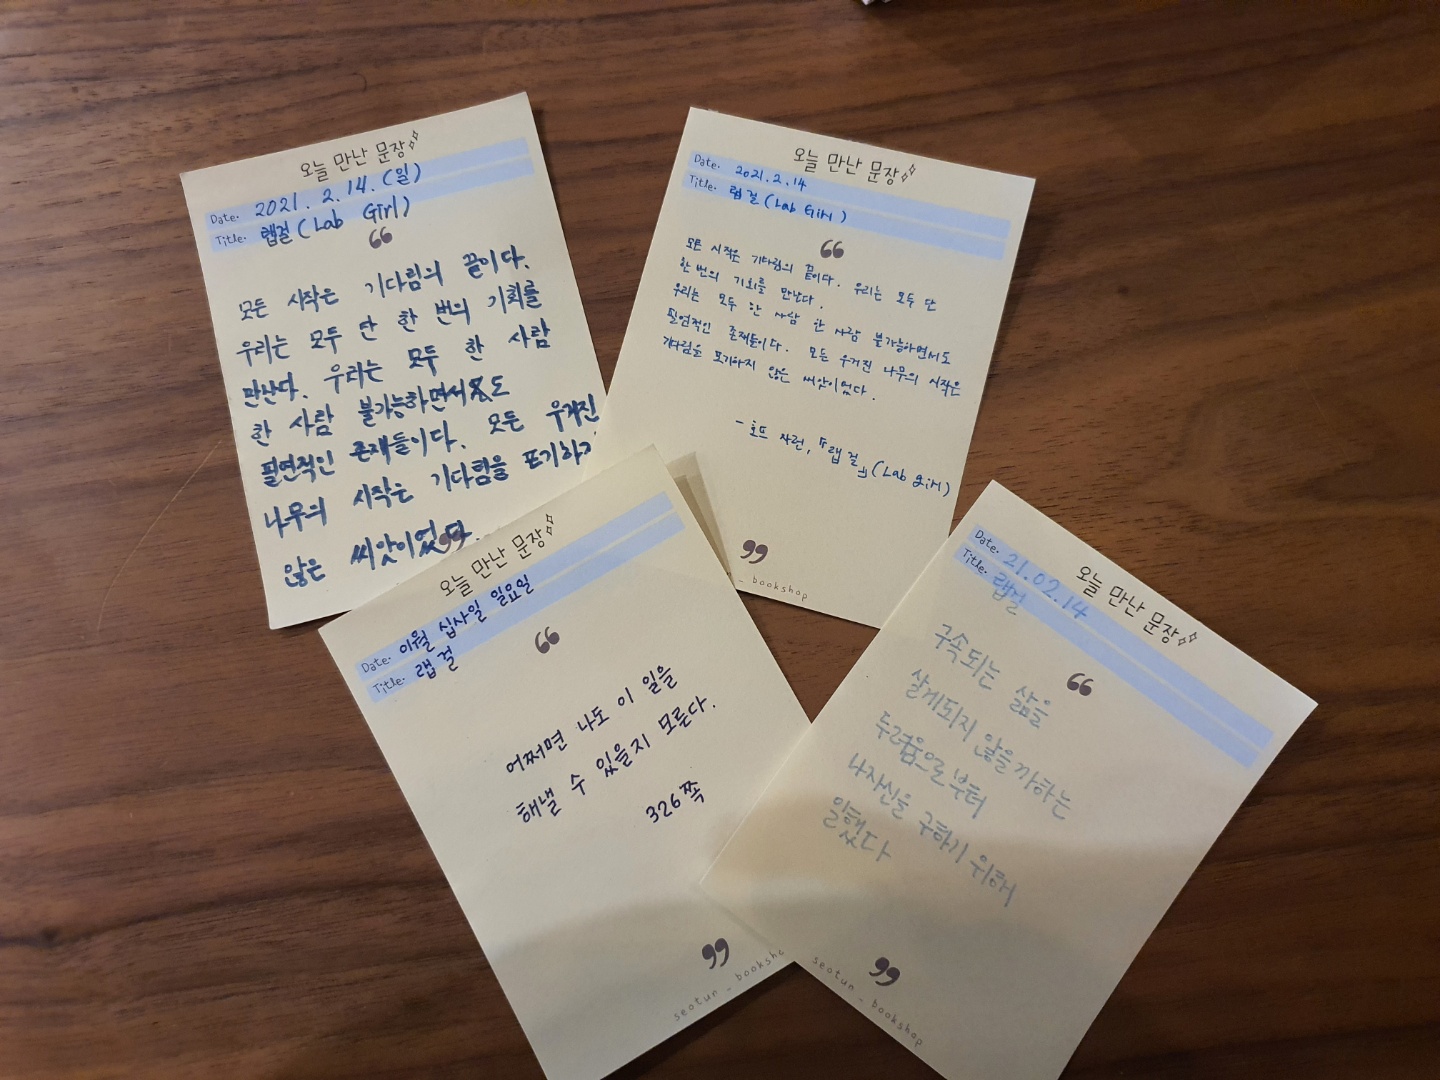 오늘 만난 문장
Date. 2021. 2. 14. (일)
Title. 랩걸 (Lab Girl)
❝
모든 시작은 기다림의 끝이다.
우리는 모두 단 한 번의 기회를
만난다. 우리는 모두 한 사람
한 사람 불가능하면서도
필연적인 존재들이다. 모든 우거진
나무의 시작은 기다림을 포기하지
않은 씨앗이었다.
❞
오늘 만난 문장
Date. 2021. 2. 14
Title. 랩걸 (Lab Girl)
❝
모든 시작은 기다림의 끝이다. 우리는 모두 단
한 번의 기회를 만난다.
우리는 모두 한 사람 한 사람 불가능하면서도
필연적인 존재들이다. 모든 우거진 나무의 시작은
기다림을 포기하지 않은 씨앗이었다.
- 호프 자런, 『랩 걸』 (Lab girl)
❞
_ bookshop
오늘 만난 문장
Date. 이월 십사일 일요일
Title. 랩 걸
❝
어쩌면 나도 이 일을
해낼 수 있을지 모른다.
326쪽
❞
seotun _ booksho
오늘 만난 문장
Date. 21.02.14
Title. 랩걸
❝
구속되는 삶을
살게되지 않을까하는
두려움으로부터
나자신을 구하기 위해
일했다
❞
seotun _ bookshop